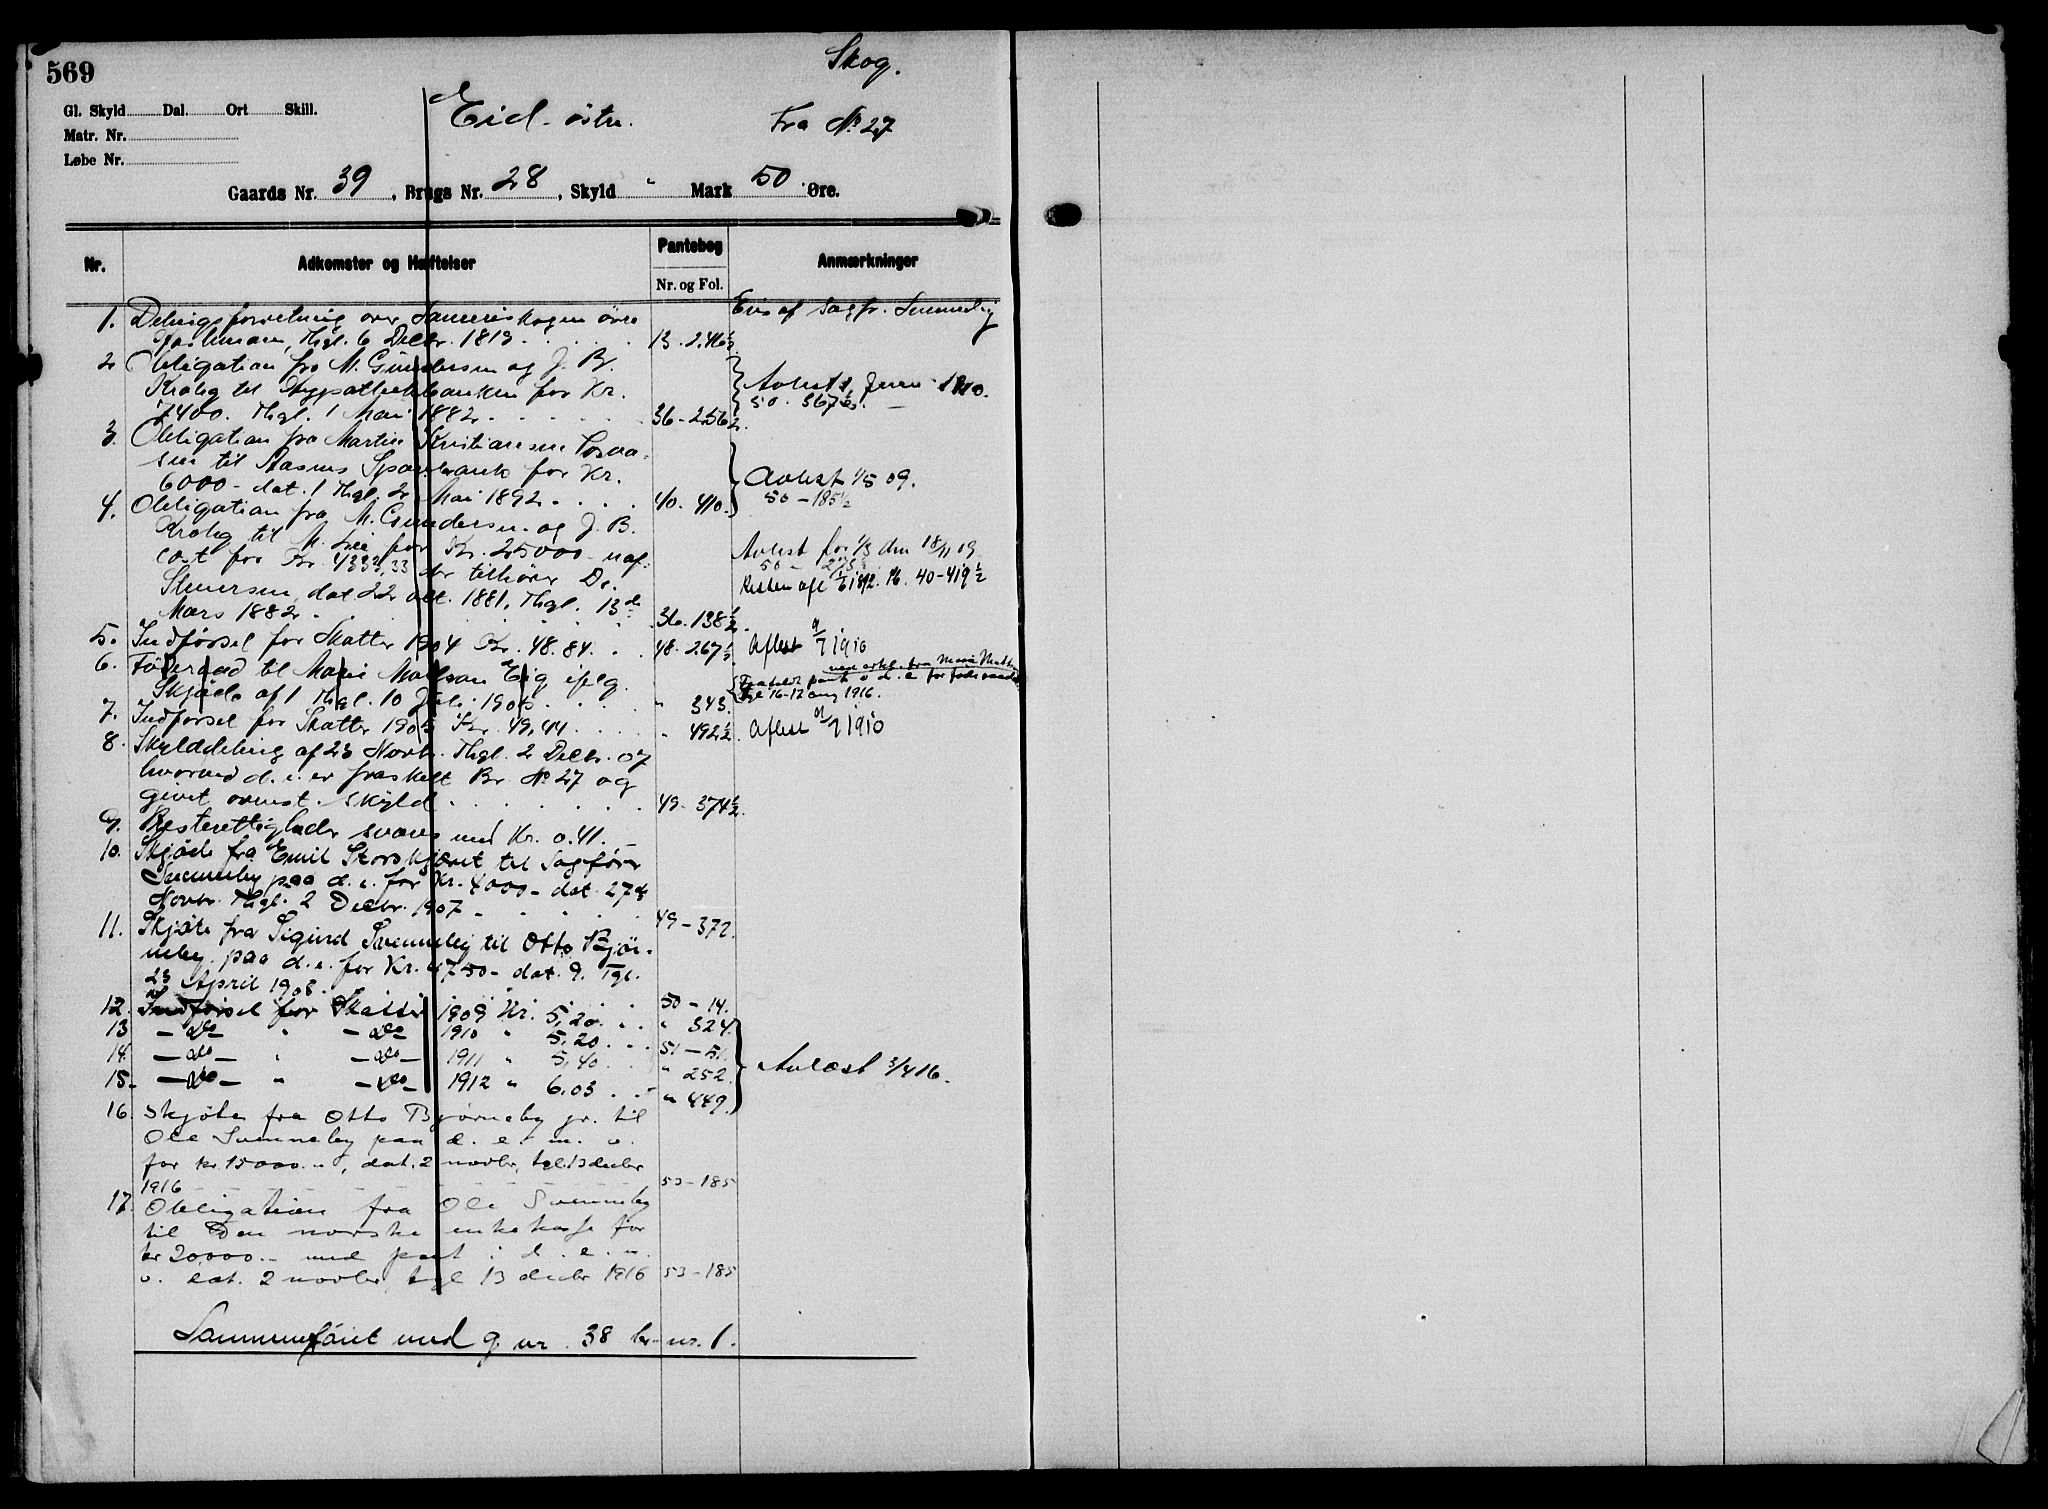 569
Skog.
Gl. Skyld Dal. Ort Skill.
Eid østre.
Fra № 27
Matr. Nr.
Løbe Nr.
Gaards Nr. 39, Brugs Nr. 28, Skyld " Mark 50 Øre.
Nr. Adkomster og Hæftelser Pantebog Nr. og Fol. Anmærkninger
Eies af Sagfr.
1. Delingsforretning over øvre
Thgl. 6 Decbr. 1813. 13. 246½.
2 Obligation fra M. Gundersen og J. B.
Krohg til Hypothekbanken for Kr.
7400. Thgl. 1 Mai 1882. 36-256½.
Avlest 1910.
50. 367½.
3. Obligation fra Martin Kristiansen
sen til Aasnes Sparebank for Kr.
6000- dat. 1 Thgl. 2 Mai 1892. 40. 410.
Avlest 1/5 09.
50-185½
4. Obligation fra M. Gundersen og J. B.
Krohg til M. Lie for Kr. 25000
for Kr. 4333,33 der tilhører Dr.
dat 22 1881, Thgl. 13de
Mars 1882. 36. 138½.
Avlest for 1/3 den 18/11 09
Resten afl 1892. 40-419½
5. Indførsel for Skatter 1904 Kr. 48.84. 48. 267½.
Aflest 9/7 1910
6. Føderaad til Marie Madsson Eig iflg.
Skjøde af 1 Thgl. 10 Juli 1905. " 343.
fra Marie
Frafaldt pant o d. e for føderaadet
tgl 16-17 aug 1916.
7. Indførsel for Skatter 1905 Kr. 49,44. " 492½.
Aflest 9/7 1910
8. Skylddeling af 23 Novbr. Thgl. 2 Decbr. 07
hvorved d. e. er fraskilt Br. № 27 og
givet ovenst. Skyld. 49-374½.
9. med Kr. 0.41.
10. Skjøde fra Emil Storskjæret til Sagfører
Svenneby paa d. e. for Kr. 4000- dat. 27de
Novbr. Thgl. 2 Decbr. 1907. 49-372.
11. Skjøte fra Sigurd Svenneby til Otto Bjør-
neby paa d. e. for Kr. 4750- dat. 9. Tgl.
23 April 1908. 50-14.
12. Indførsel for Skatter 1909 Kr. 5,20. " 324.
13 -do- " -do- 1910 " 5,20. 51-51.
14. -do- " -do- 1911 " 5,40. " 252.
15. -do- " -do- 1912 " 6.03. " 449.
Avlæst 3/4 16.
16. Skjøte fra Otto Bjørneby jr. til
Ole Svenneby paa d. e. m. v.
for kr. 15000.-, dat. 2 novbr, tgl. 13 decbr
1916 53-185
17. Obligation fra Ole Svenneby
til Den norske enkekasse for
kr 20,000.- med pant i d. e. m.
v. dat. 2 novbr, tgl 13 decbr 1916 53-185
Sammenføiet med g. nr. 38 br. nr. 1.